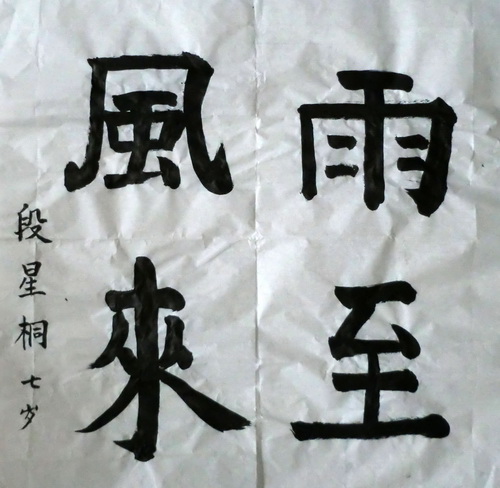 雨至
風來
段星桐七岁